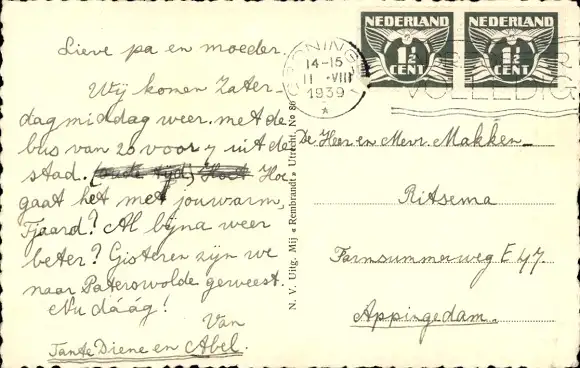 Lieve pa en moeder.
Wij komen Zater-
dagmiddag weer met de
bus van 20 voor 7 uit de
stad. (oude tijd) Hoe
gaat het met jouw arm,
Tjaard? Al bijna weer
beter? Gisteren zijn we
naar Paterswolde geweest.
Nu dááág!
Van
Tante Diene en Abel.
N. V. Uitg. Mij « Rembrandt » Utrecht, No 86
GRONINGEN
14-15
11 VIII
1939
*
NEDERLAND
1½
CENT
NEDERLAND
1½
CENT
VOLLEDIG
De Heer en Mevr. Makken-
Ritsema
Farmsummerweg E 47.
Appingedam.